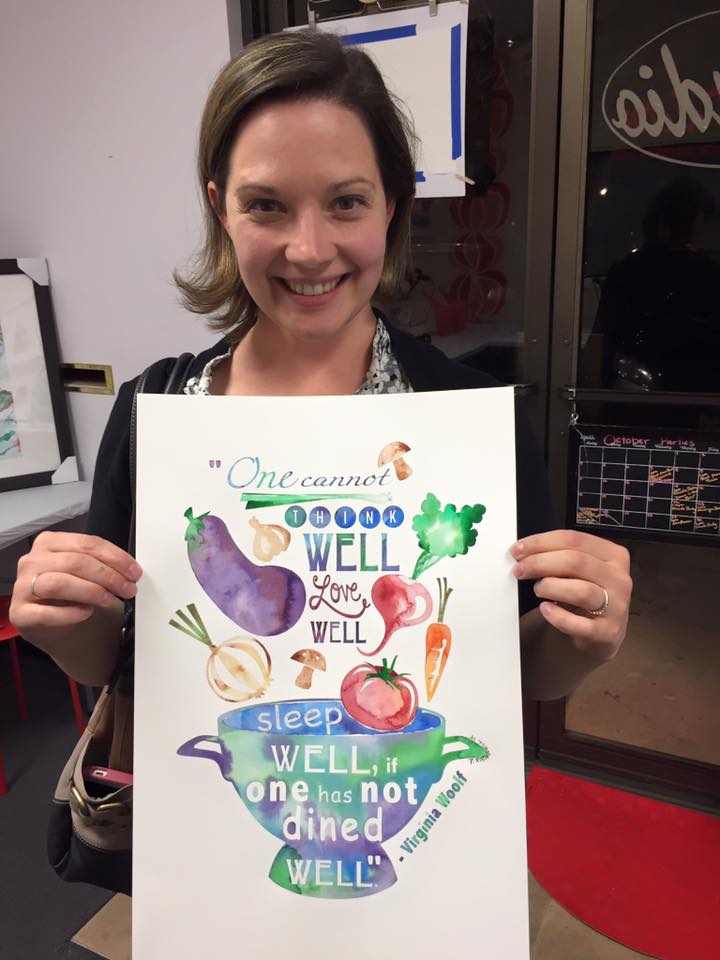 "One cannot
THINK
WELL
Love
WELL
sleep
WELL, if
one has not
dined
WELL."
- Virginia Woolf
October Parties